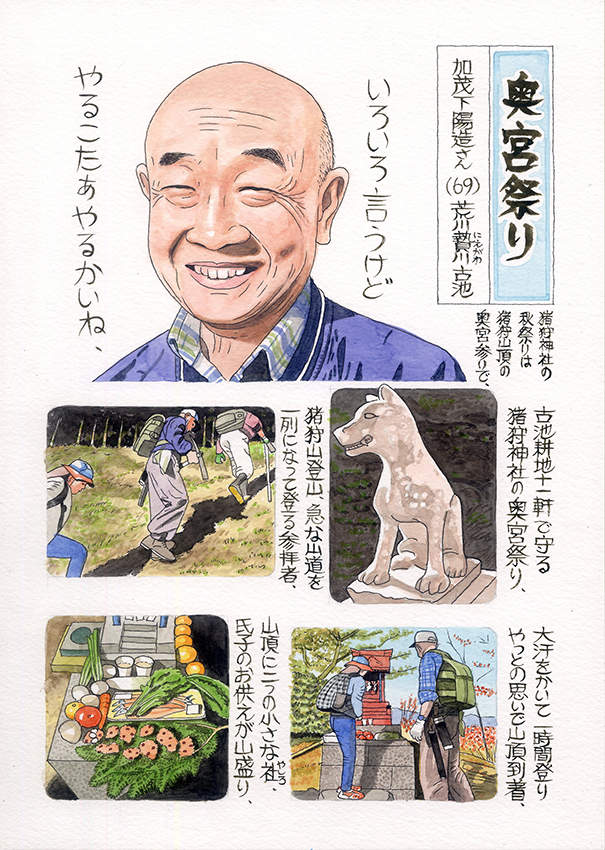 奥宮祭り
加茂下陽造さん(69)荒川贄川古池
にえがわ
いろいろ言うけど
やるこたあやるかいね、
猪狩神社の
秋祭りは
猪狩山頂の
奥宮参りで、
古池耕地十二軒で守る
猪狩神社の奥宮祭り、
猪狩山登山、急な山道を
一列になって登る参拝者、
大汗をかいて一時間登り
やっとの思いで山頂到着、
山頂に二つの小さな社、
やしろ
氏子のお供えが山盛り、